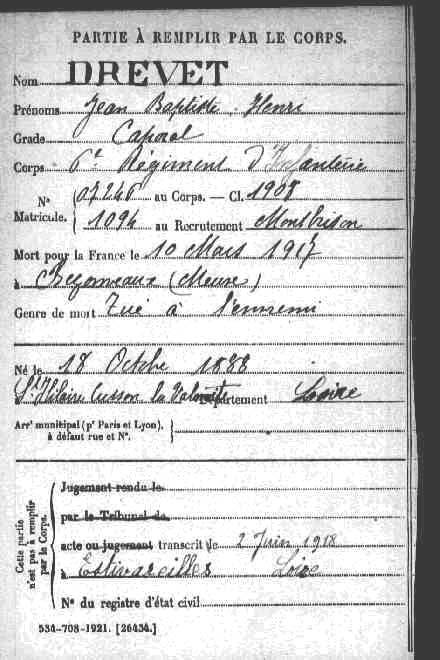 PARTIE À REMPLIR PAR LE CORPS.
Nom DREVET
Prénoms Jean Baptiste Henri
Grade Caporal
Corps 6e Régiment D'Infanterie
N° 07246 au Corps. — Cl. 1908
Matricule. 1094 au Recrutement Montbrison
Mort pour la France le 10 Mars 1917
à Bezonvaux (Meuse)
Genre de mort Tué à l'ennemi
Né le 18 Octobre 1888
à St Hilaire Cusson la Valmitte Département Loire
Arrt municipal (pr Paris et Lyon),
à défaut rue et N°.
Cette partie
n'est pas à remplir
par le Corps.
Jugement rendu le
par le Tribunal de
acte ou jugement transcrit le 2 Juin 1918
à Estivareilles Loire
N° du registre d'état civil
534-708-1921. [26434.]